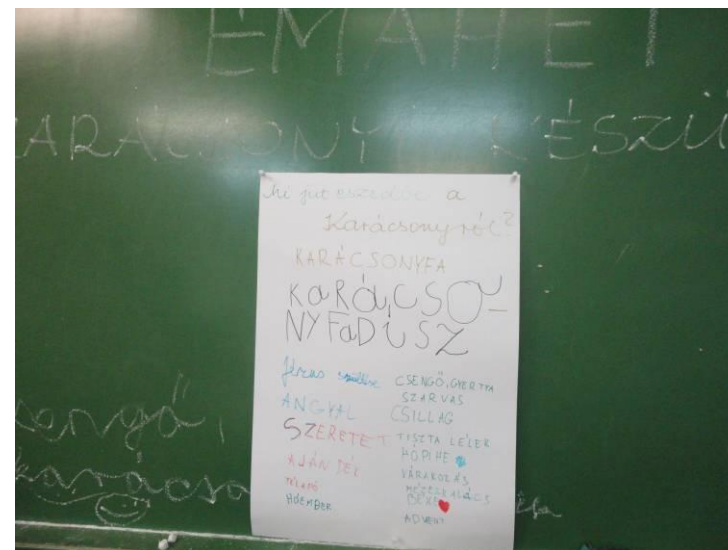 ÉMAHÉT
ARÁCSONYI KÉSZÜ
Mi jut eszedbe a
Karácsonyról?
KARÁCSONYFA
KARÁCSO-
NYFADÍSZ
Jézus születése
CSENGŐ, GYERTYA
SZARVAS
ANGYAL
CSILLAG
SZERETET
TISZTA LÉLEK
HÓPIHE
AJÁNDÉK
VÁRAKOZÁS
TÉLAPÓ
MÉZESKALÁCS
HÓEMBER
BÉKE
ADVENT
songő,
karácso